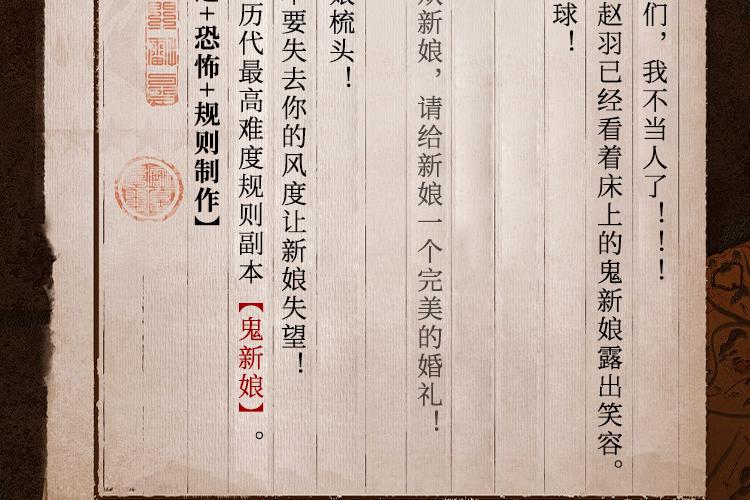 们，我不当人了！！！
赵羽已经看着床上的鬼新娘露出笑容。
球！
新娘，请给新娘一个完美的婚礼！
梳头！
要失去你的风度让新娘失望！
历代最高难度规则副本【鬼新娘】。
+恐怖+规则制作】